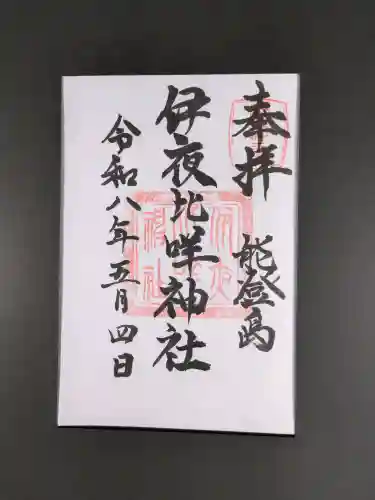 奉拝 能登島
伊夜比咩神社
令和八年五月四日